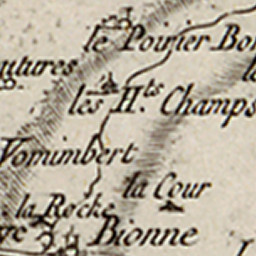 le Poirier Bo
utures
les H.ts Champs
Vomimbert
la Cour
la Rocke
Bionne